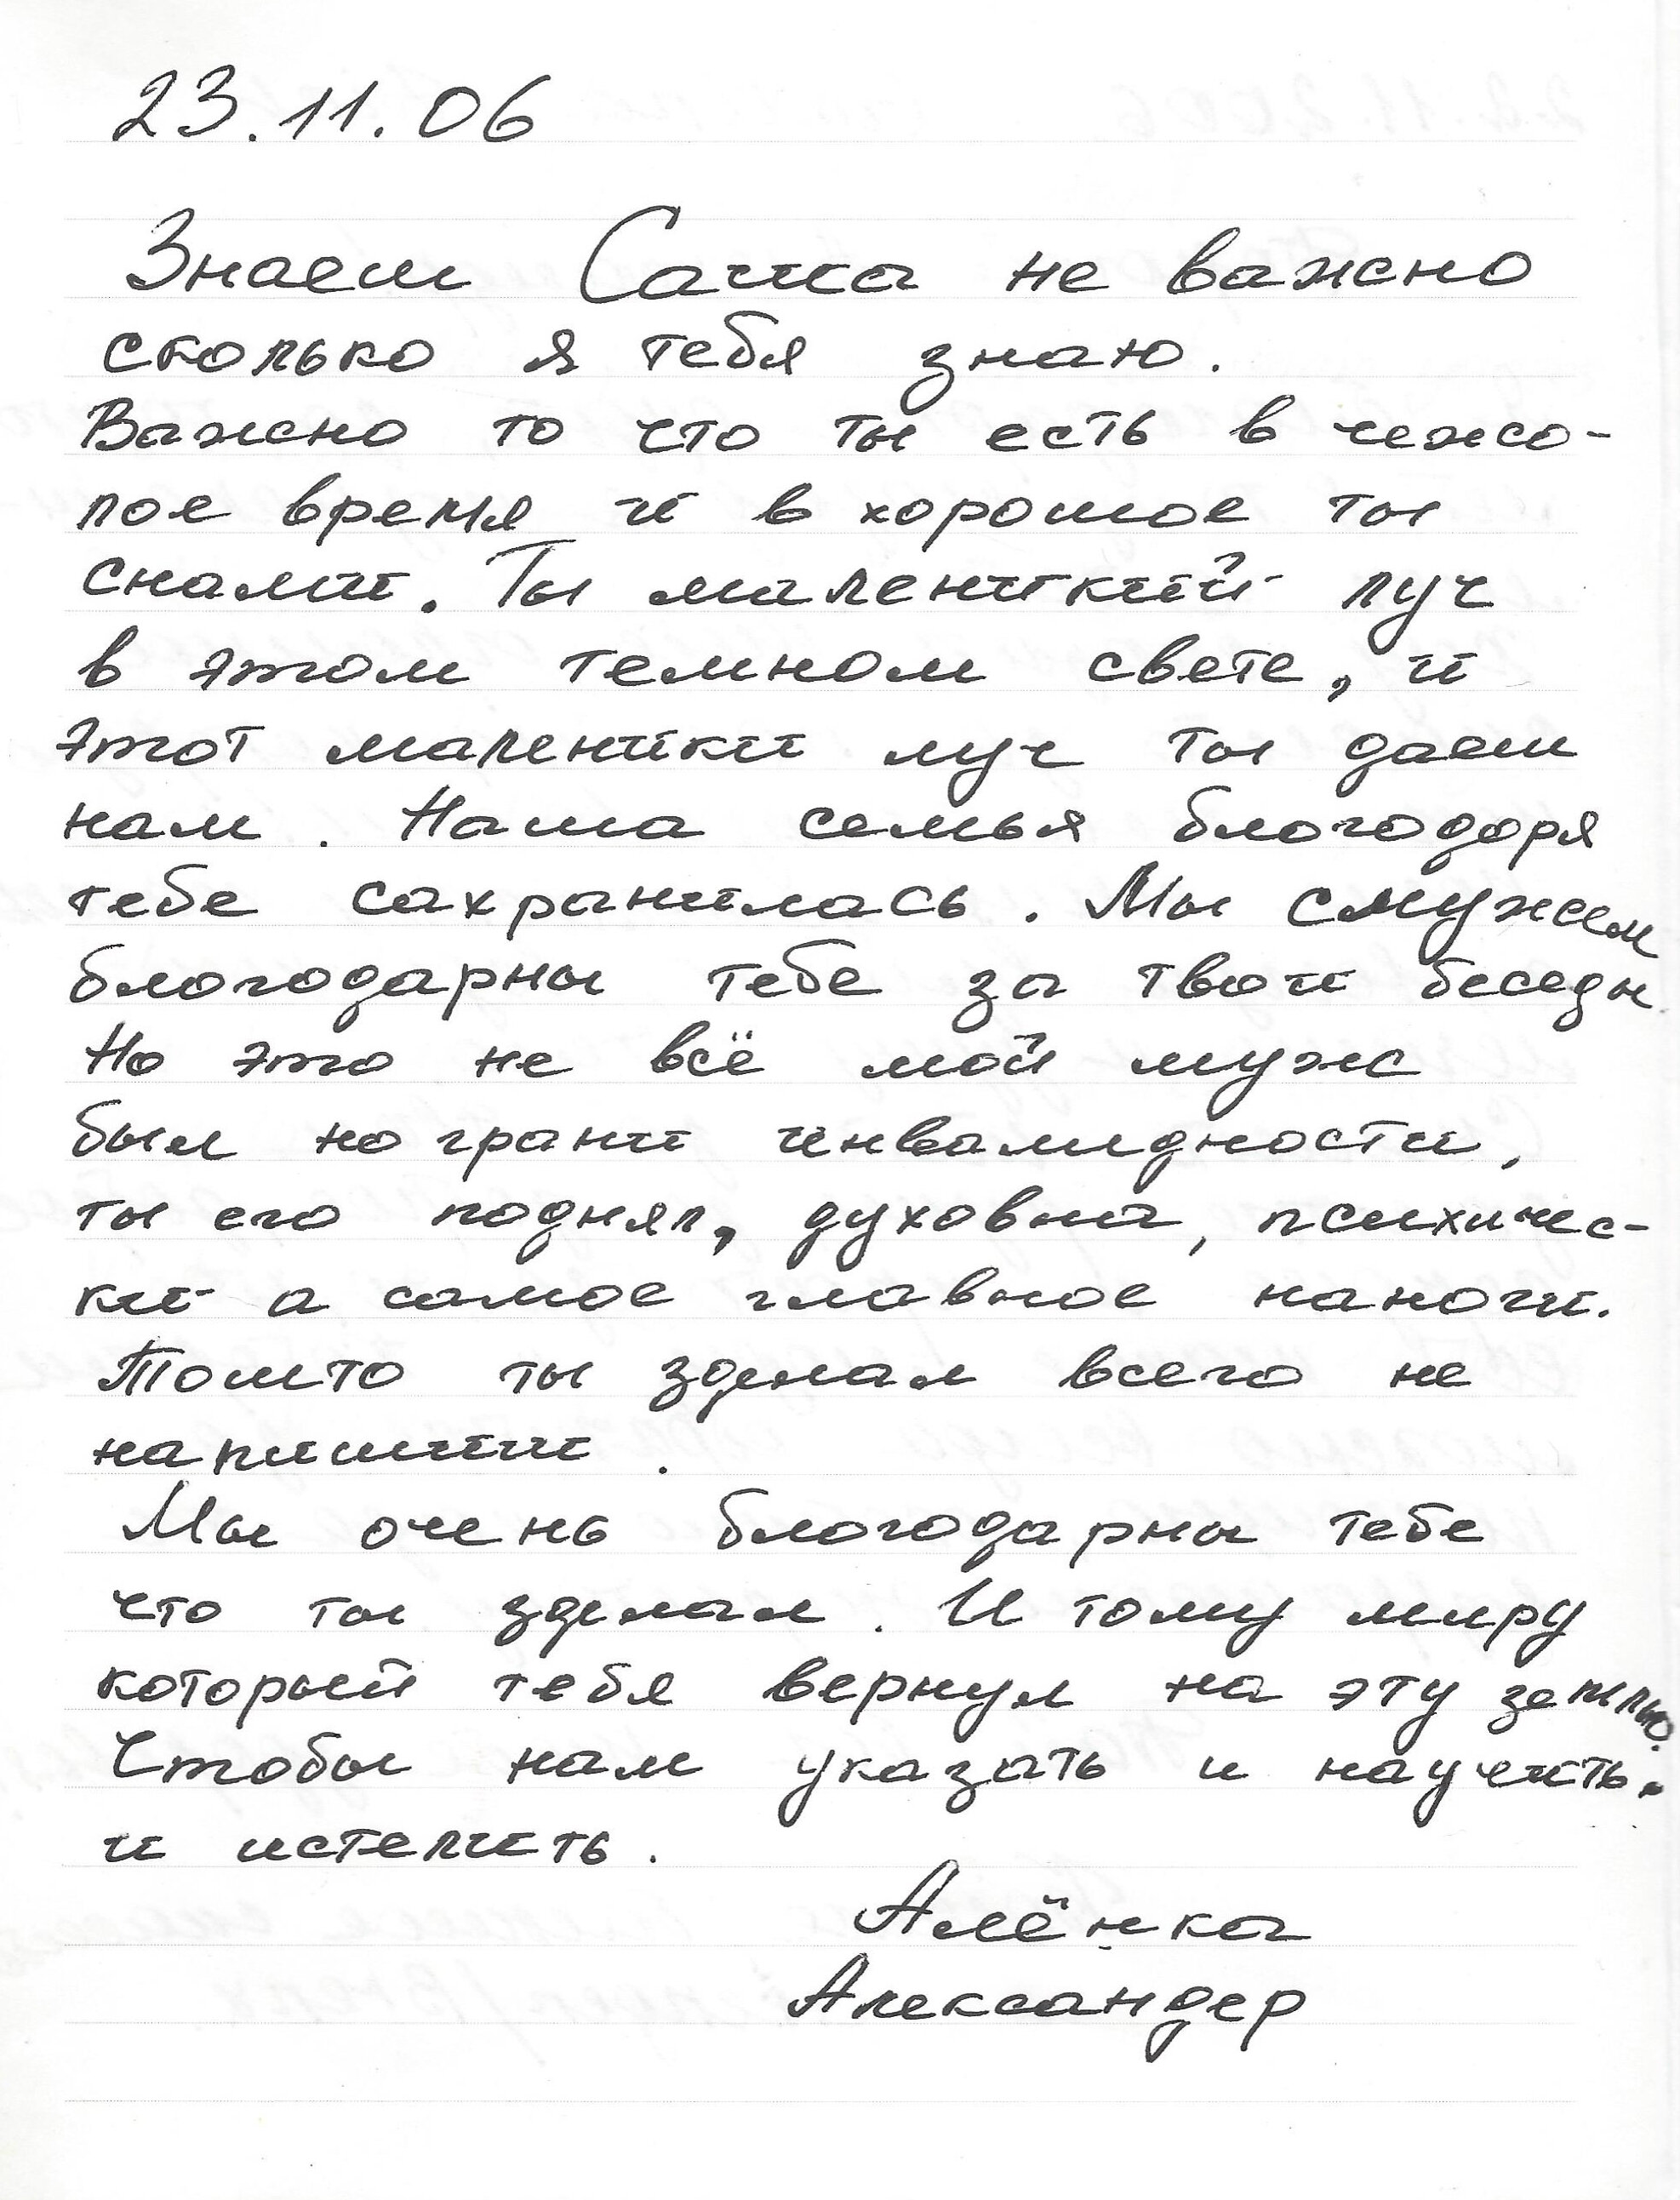 23.11.06
Знаеш Сашка не важно
сколько я тебя знаю.
Важно то что ты есть в чежо-
лое время и в хорошое ты
снами. Ты маленикий луч
в этом темном свете, и
этот маленики луч ты даеш
нам. Наша семья благодоря
тебе сахранилась. Мы смужем
благодарны тебе за твои беседы
Но это не всё мой муж
был на грани инвалидности,
ты его поднял, духовна, психичес-
ки а самое главное наноги.
Томто ты зделал всего не
напишеш.
Мы очень благодарны тебе
что ты зделал. И тому миру
который тебя вернул на эту землю.
Чтобы нам указать и научить.
и истелить.
Алёнка
Александер